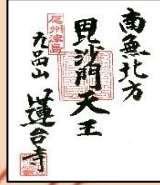 南無北方
毘沙門天王
尾州津島
九品山
蓮台寺